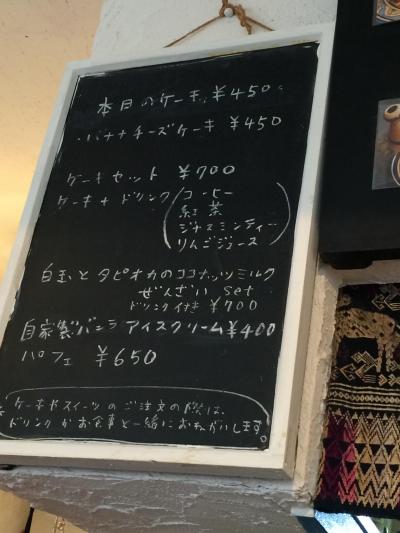 本日のケーキ ¥450
・バナナチーズケーキ ¥450
ケーキセット ¥700
ケーキ+ドリンク(コーヒー
紅茶
ジャスミンティー
りんごジュース)
白玉とタピオカのココナッツミルク
ぜんざい set
ドリンク付き ¥700
自家製バニラアイスクリーム ¥400
パフェ ¥650
ケーキやスイーツのご注文の際は、
ドリンクかお食事と一緒におねがいします。